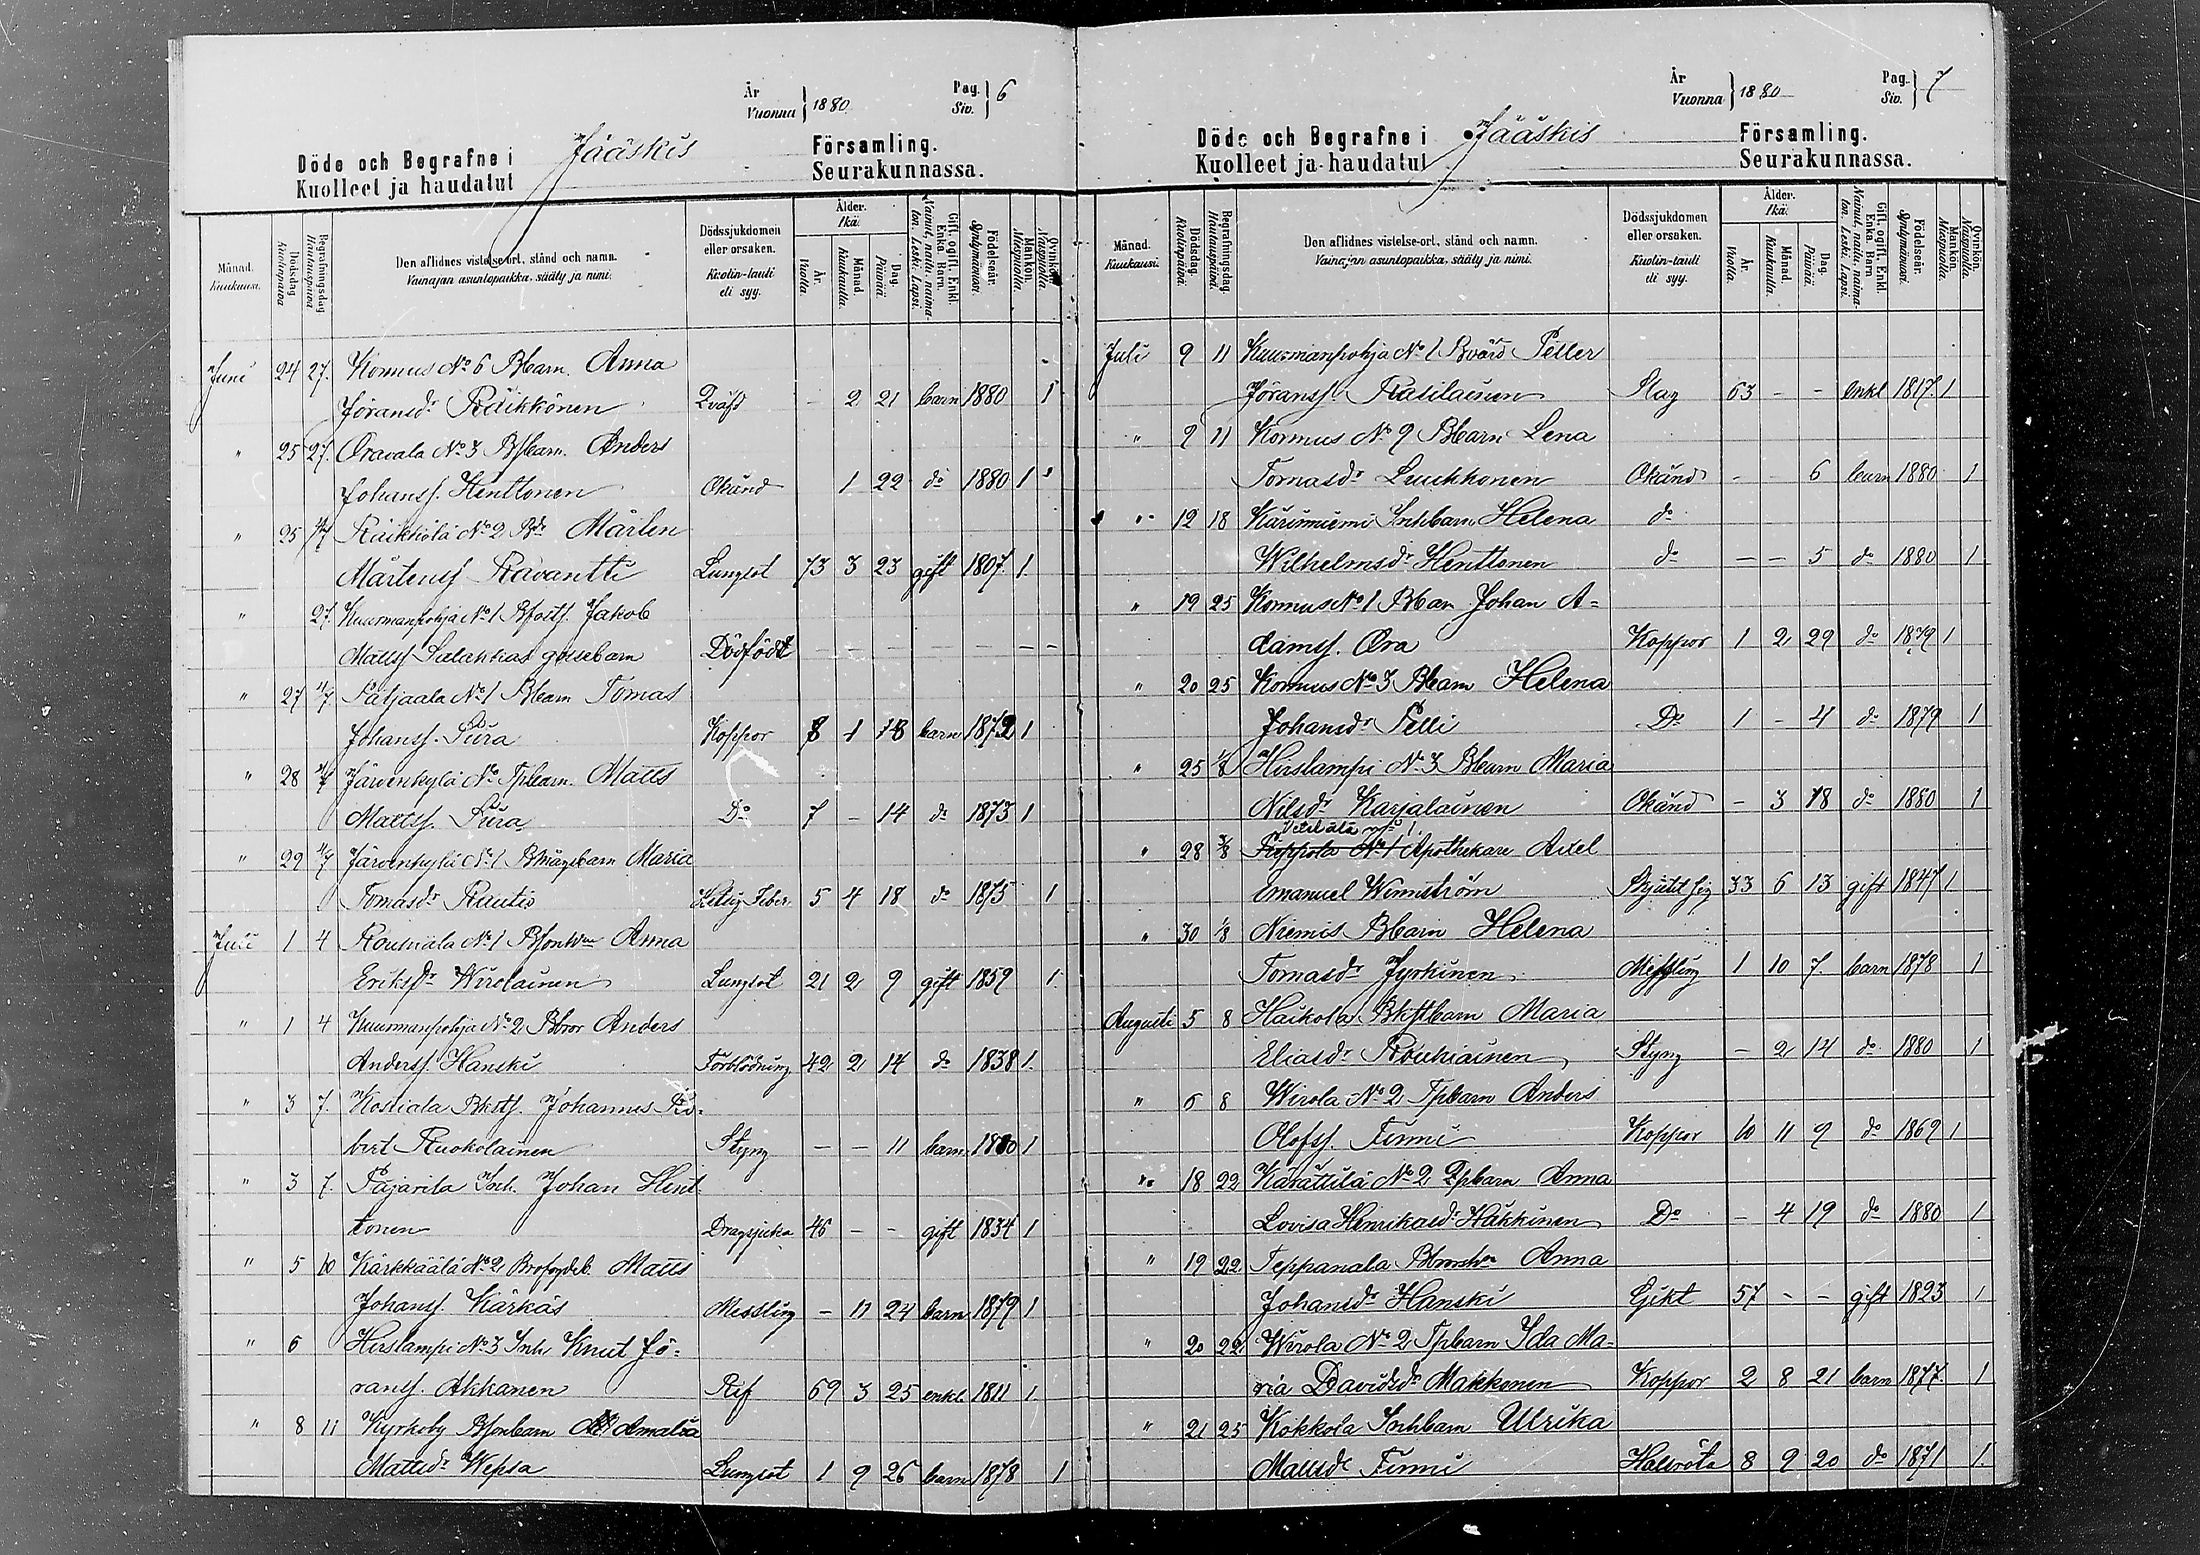 År Vuonna } 1880. Pag. Siv. } 6
Döde och Begrafne i Jääskis Församling.
Kuolleet ja haudatut Seurakunnassa.
Månad. Kuukausi. Dödsdag. Kuolinpäivä. Begrafningsdag. Hautauspäivä. Den aflidnes vistelse-ort, stånd och namn. Vainajan asuntopaikka, sääty ja nimi. Dödssjukdomen eller orsaken. Kuolin-tauti eli syy. Ålder. Ikä. År. Vuotta. Månad. Kuukautta. Dag. Päivää. Gift, ogift, Enkl. Enka. Barn. Nainut, naitu, naimaton. Leski. Lapsi. Födelseår. Syntymävuosi. Mankön. Miespuolta. Qvinkön. Naispuolta.
Juni 24 27. Kormus No 6 Bbarn. Anna
Jöransdr Räikkönen Qväfd - 2 21 barn 1880 1
" 25 27. Oravala No 3 Barn. Anders
Johanss. Henttonen Okänd 1 22 do 1880 1
" 25 4/7 Räikkölä No 2 Bde Mårten
Mårtenss Ravantti Lungsot 73 3 23 gift 1807. 1.
" 27. Kuurmanpohja No 1 Jakob
Matts Salakkas gossebarn Dödfödt - - - - - - -
" 27 4/7 Patjaala No 1 Bbarn Tomas
Johanss. Pura Koppor 8 1 18 barn 1872 1
" 28 4/7 Järvenkylä No Tpbarn. Matts
Matts. Pura Do 7 - 14 do 1873 1
" 29 4/7 Järvenkylä No 1 Maria
Tomasdr Rautio Hetsig Feber 5 4 18 do 1875 1
Juli 1 4 Rouhiala No 1 Anna
Eriksdr Wirolainen Lungsot 21 2 9 gift 1859 1.
" 1 4 Kuurmanpohja No 2 Bbror Anders
Anderss. Hanski Förblödning 42 2 14 do 1838 1.
" 3 7. Kostiala Johannes Ro-
bert Ruokolainen Styng - - 11 barn 1880 1
" 3 7. Pajarila Inh. Johan Hent-
tonen Dragsjuka 46 - - gift 1834 1
" 5 10 Kärkkäälä No 2 Matts
Johanss. Kärkäs Messling - 11 24 barn 1879 1
" 6 Hirslampi No 3 Inh. Knut Jö-
ranss. Akkanen Ref 69 3 25 enkl. 1811 1.
" 8 11 Kyrkoby Amalia
Mattsdr Wepsa Lungsot 1 9 26 barn 1878 1
År Vuonna } 1880 Pag. Siv. } 7
Döde och Begrafne i Jääskis Församling.
Kuolleet ja haudatut Seurakunnassa.
Månad. Kuukausi. Dödsdag. Kuolinpäivä. Begrafningsdag. Hautauspäivä. Den aflidnes vistelse-ort, stånd och namn. Vainajan asuntopaikka, sääty ja nimi. Dödssjukdomen eller orsaken. Kuolin-tauti eli syy. Ålder. Ikä. År. Vuotta. Månad. Kuukautta. Dag. Päivää. Gift, ogift, Enkl. Enka. Barn. Nainut, naitu, naimaton. Leski. Lapsi. Födelseår. Syntymävuosi. Mankön. Miespuolta. Qvinkön. Naispuolta.
Juli 9 11 Kuurmanpohja No 1 Bvärd Petter
Jöranss. Rasilainen Slag 63 - - enkl 1817. 1
" 9 11 Kormus No 9 Bbarn Lena
Tomasdr Luukkonen Okänd - 6 barn 1880 1
" 12 18 Kärinniemi Inhbarn Helena do
Wilhelmsdr Henttonen do - - 5 do 1880 1
" 19 25 Kormus No 1 Bbarn Johan A-
damss. Ora Koppor 1 2 29 do 1879 1
" 20 25 Kormus No 3 Bbarn Helena
Johansdr Pelli Do 1 - 4 do 1879 1
" 25 1/8 Hirslampi No 3 Bbarn Maria
Nilsdr Karjalainen Okänd - 3 18 do 1880 1
" 28 No 1 Apothekare Axel
Emanuel Winnström 33 6 13 gift 1847 1
" 30 1/8 Niemis Bbarn Helena
Tomasdr Jyrkinen Messling 1 10 7. barn 1878 1
Augusti 5 8 Haikola Maria
Eliasdr Rouhiainen Styng - 2 14 do 1880 1
" 6 8 Wirola No 2 Tpbarn Anders
Olofss. Finni Koppor 10 11 9 do 1869 1
" 18 22 Kärättilä No 2 Anna
Lovisa Henriksdr Häkkinen Do - 4 19 do 1880 1
" 19 22 Teppanala Anna
Johansdr Hanski Gikt 57 - - gift 1823 1
" 20 22 Wirola No 2 Tpbarn Ida Ma-
ria Davidsdr Makkonen Koppor 2 8 21 barn 1877. 1
" 21 25 Kokkola Inhbarn Ulrika
Mattsdr Finni Halsröta 8 9 20 do 1871 1.